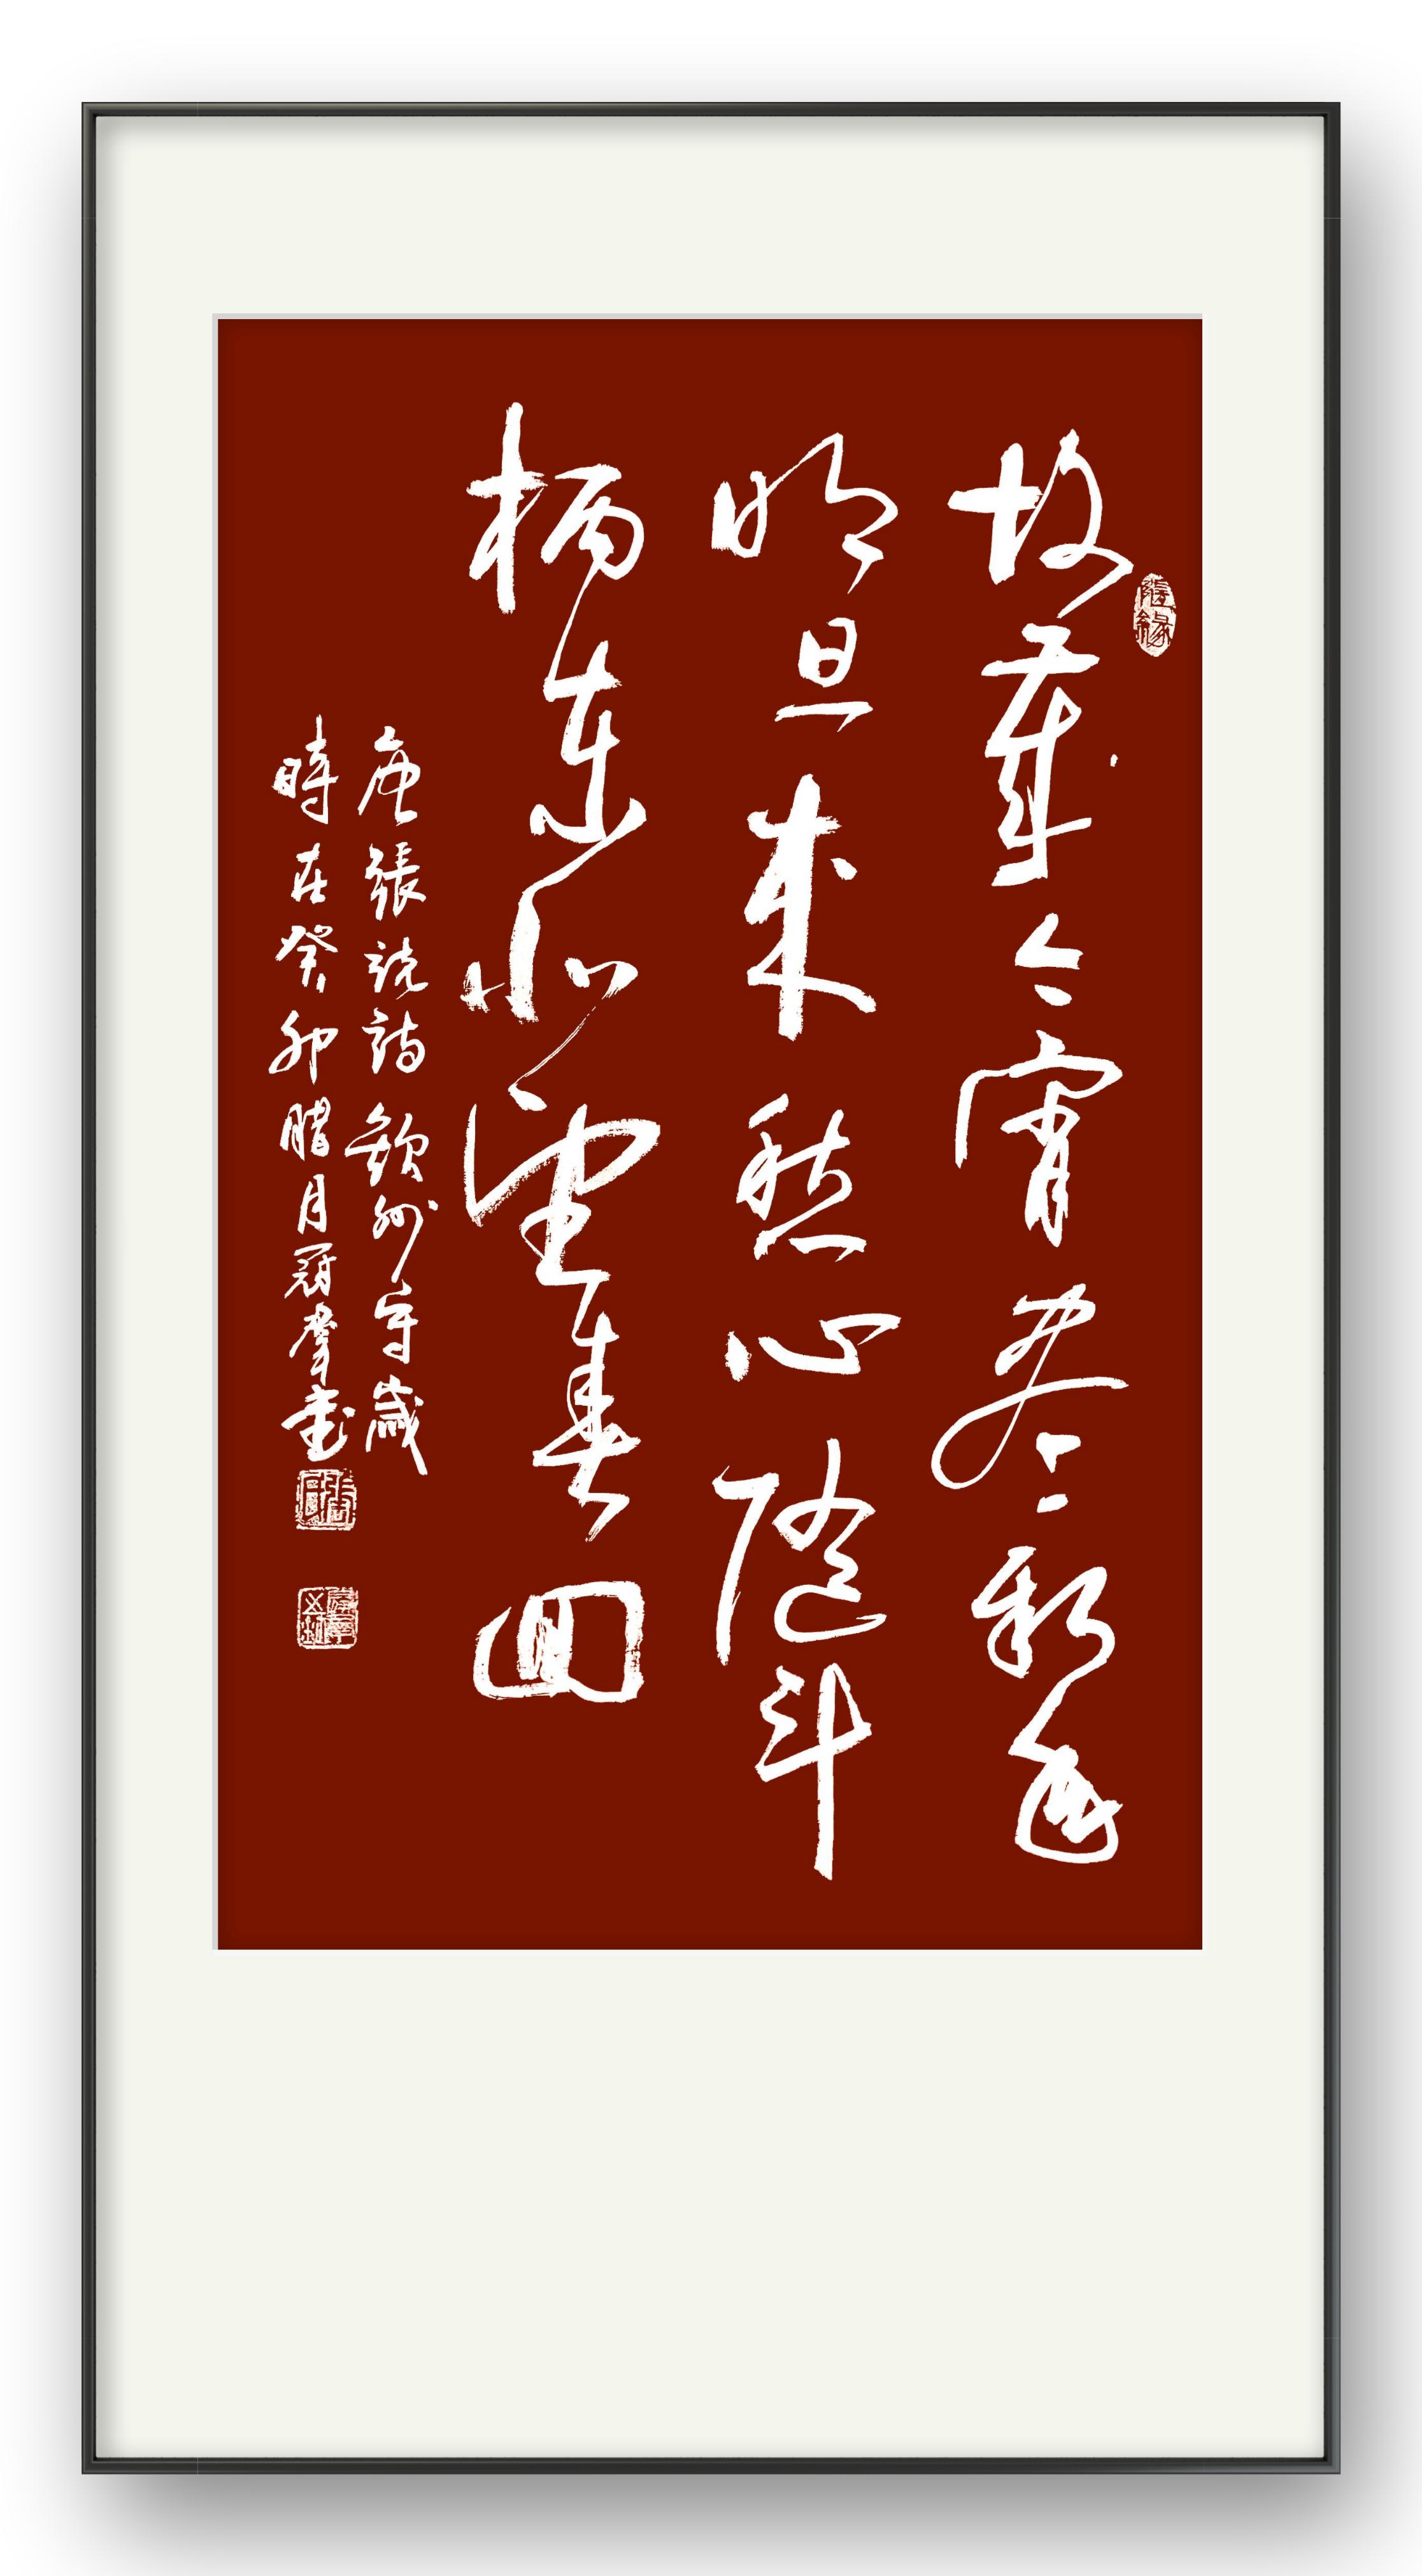 故歲今宵盡新年
明旦來愁心隨斗
柄東北望春回
唐張說詩欽州守歲
時在癸卯臘月冠群書
隨緣